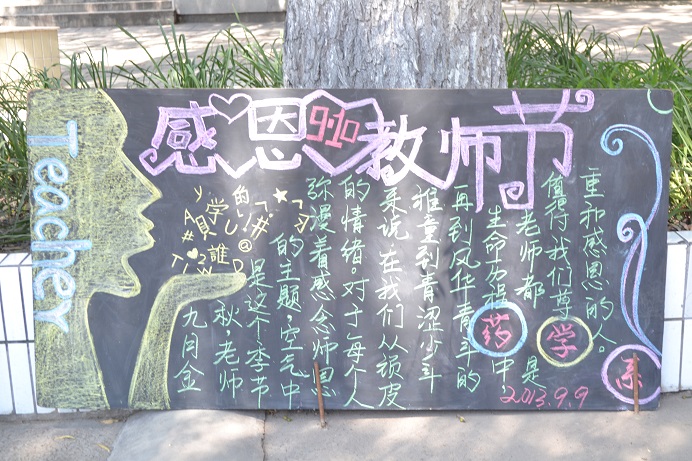 感恩9·10教师节
Teacher
九月金
秋,老师
是这个季节
的主题,空气中
弥漫着感念师恩
的情绪。对于每个人
来说 在我们从顽皮
雅童到青涩少年
再到风华青年的
生命历程中
老师都是
值得我们尊
重和感恩的人。
药学系
2013.9.9
的
学
誰